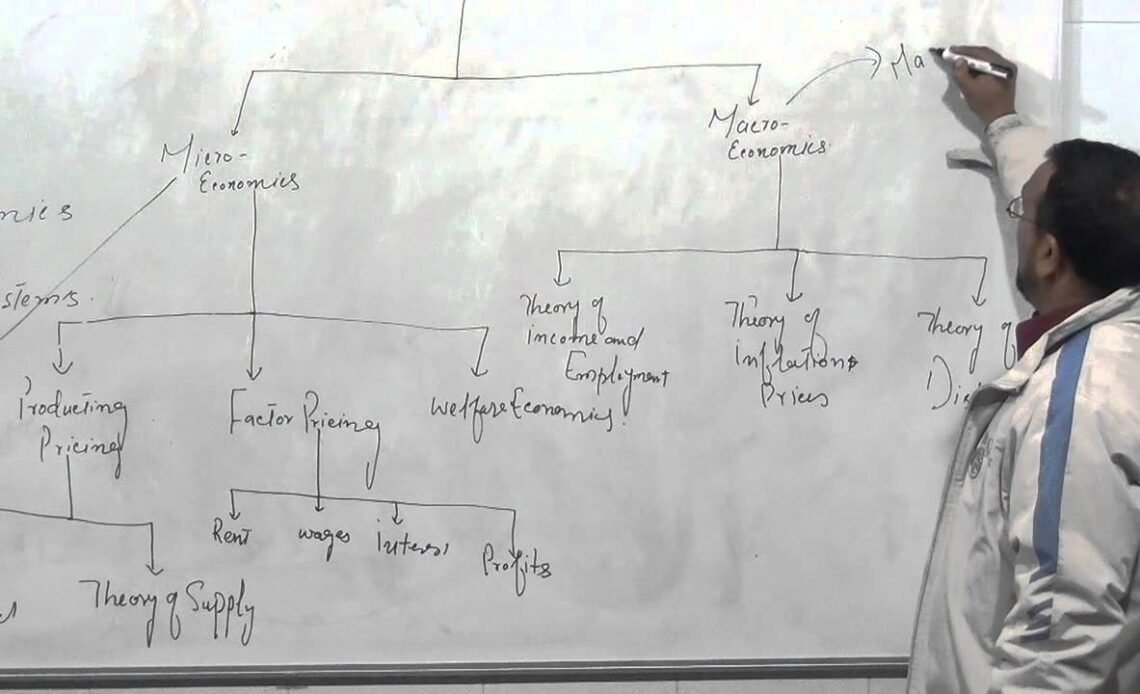 Ma
Micro-
Economics
Macro-
Economics
mics
stems.
Theory of
income and
Employment
Theory of
inflations
Prices
Theory of
Dis
Producting
Pricing
Factor Pricing
Welfare Economics.
Rent
wages
interest
Profits
Theory of Supply